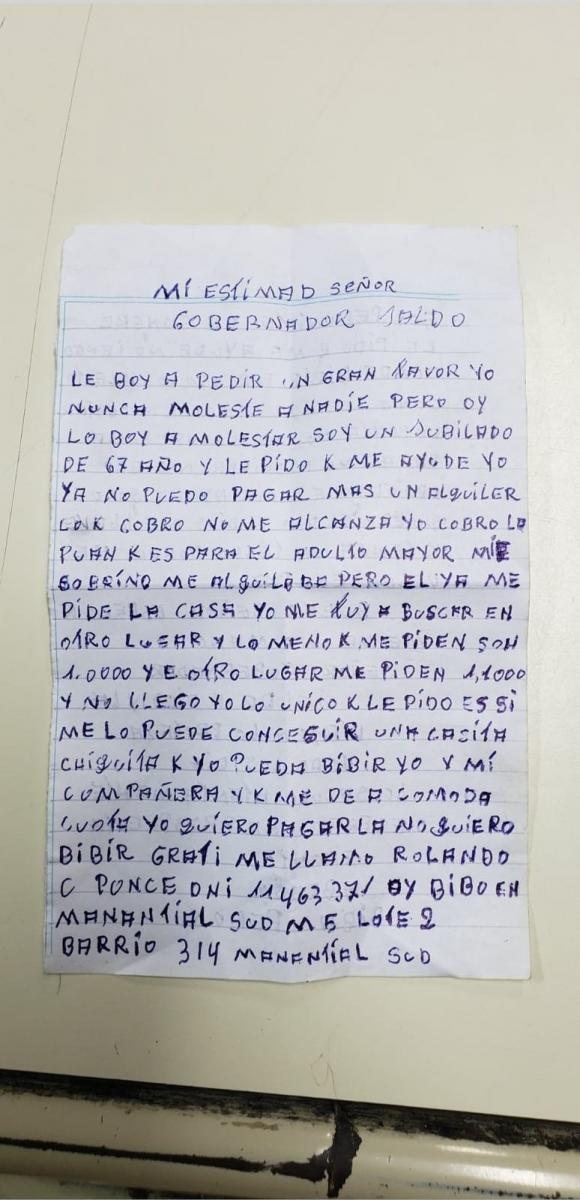 MI ESTIMAD SEÑOR
GOBERNADOR JALDO
LE BOY A PEDIR UN GRAN FAVOR YO
NUNCA MOLESTE A NADIE PERO OY
LO BOY A MOLESTAR SOY UN JUBILADO
DE 67 AÑO Y LE PIDO K ME AYUDE YO
YA NO PUEDO PAGAR MAS UN ALQUILER
LO K COBRO NO ME ALCANZA YO COBRO LA
PUAN K ES PARA EL ADULTO MAYOR MI
SOBRINO ME ALQUILABA PERO EL YA ME
PIDE LA CASA YO ME FUY A BUSCAR EN
OTRO LUGAR Y LO MENO K ME PIDEN SON
1.0000 Y E OTRO LUGAR ME PIDEN 1,1000
Y NO LLEGO YO LO UNICO K LE PIDO ES SI
ME LO PUEDE CONCEGUIR UNA CASITA
CHIQUITA K YO PUEDA BIBIR YO Y MI
COMPAÑERA Y K ME DE A COMODA
CUOTA YO QUIERO PAGARLA NO QUIERO
BIBIR GRATI ME LLAMO ROLANDO
C PONCE DNI 11463371 OY BIBO EN
MANANTIAL SUD M 5 LOTE 2
BARRIO 314 MANANTIAL SUD